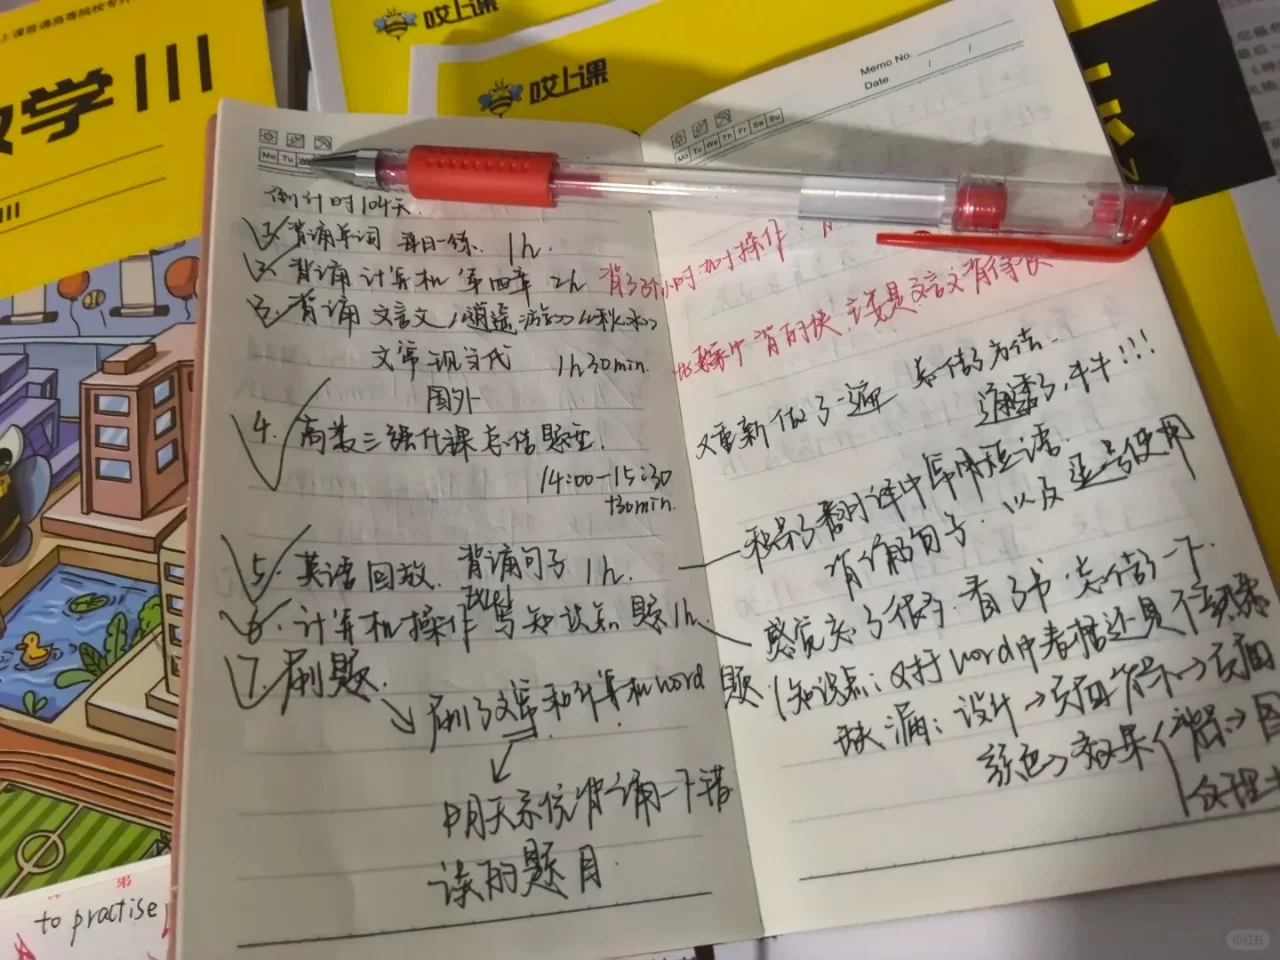 上课普通高等院校专升
数学III
III
哎上课
哎上课
Memo No.
Date / /
Mo Tu We
Mo Tu We Th Fr Sa Su
倒计时104天.
1. 背诵单词 每日一练. 1h.
2. 背诵计算机第四章 2h
3. 背诵文言文《逍遥游》《秋水》
文常现当代 1h30min.
国外
4. 高数三强化课总结题型.
14:00—15:30
+30min.
5. 英语回放. 背诵句子 1h.
6. 计算机操作 写知识点 题1h.
7. 刷题.
刷了文常和计算机word题.
明天系统背诵一下错
误的题目.
背了3个小时 加计操作.
背的快.主要是文言文背得快
又重新做了一遍 总结了方法.
通透了,牛牛!!!
积累了翻译中专用短语.
以及逗号使用
感觉忘了很多.看了书.总结了一下.
知识点:对于word中有些还是不熟练
缺漏:设计→页面背景→页面
颜色→效果
纹理
to practise
第
小红书